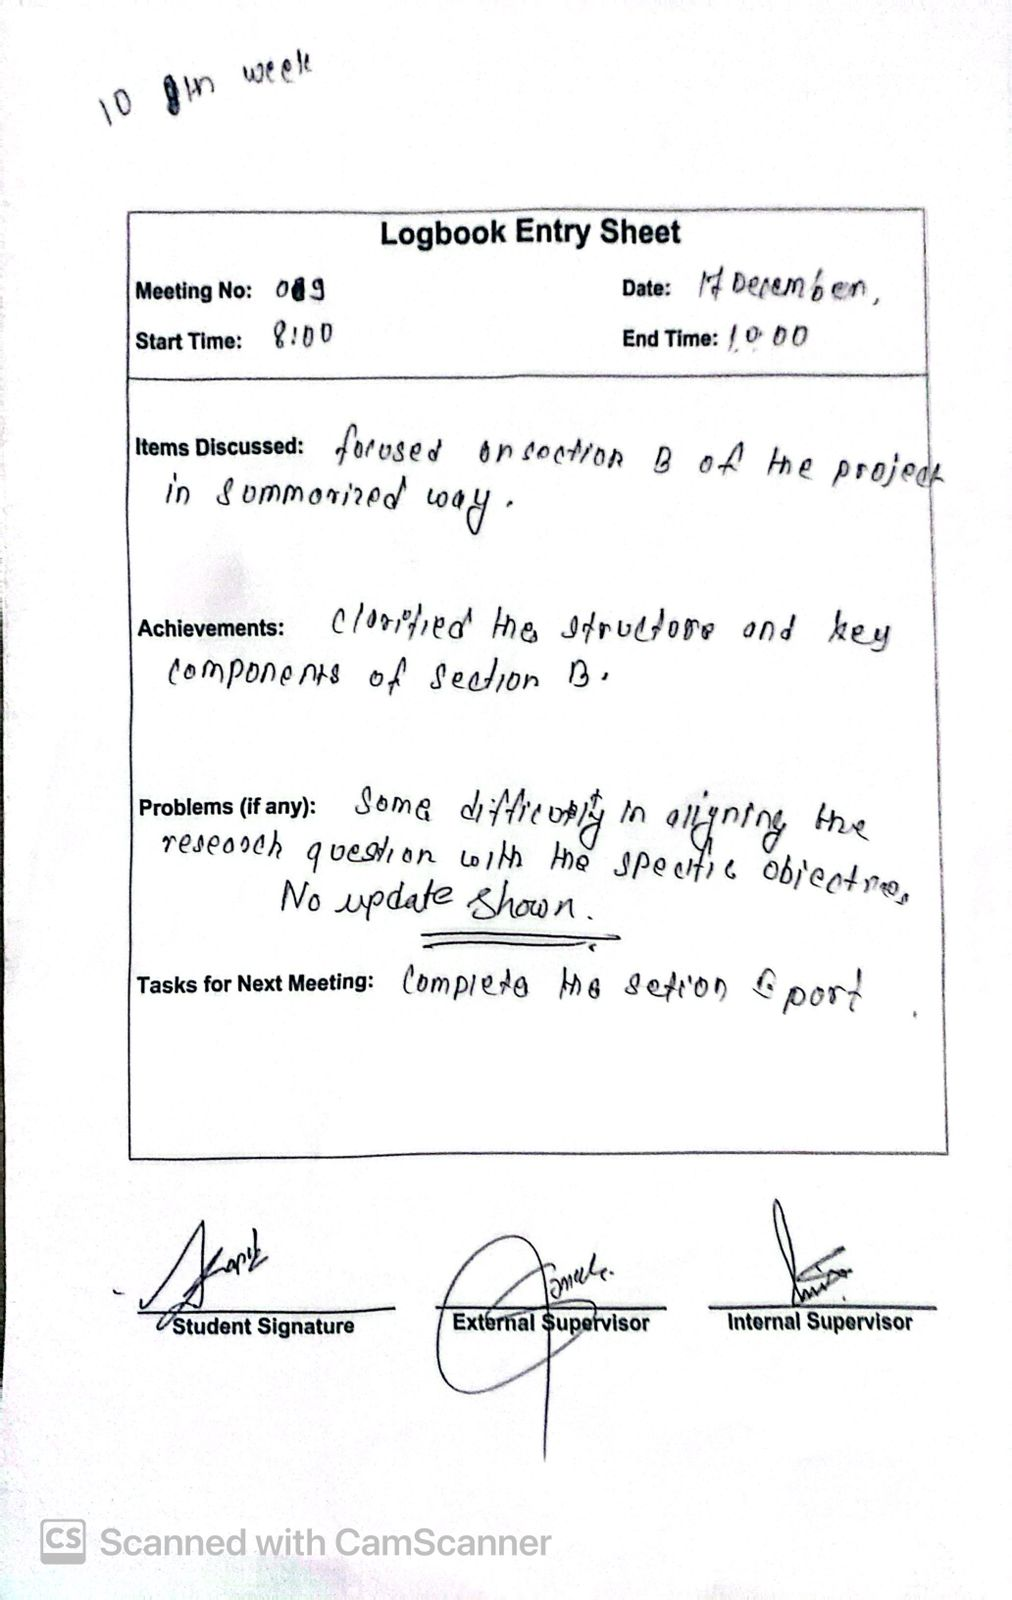 10 th week
Logbook Entry Sheet
Meeting No: 009 Date: 17 December,
Start Time: 8:00 End Time: 10:00
Items Discussed: focused on section B of the project
in summorized way.
Achievements: Clarified the structure and key
components of section B.
Problems (if any): Some difficulty in aligning the
research question with the specific objectives.
No update shown.
Tasks for Next Meeting: Complete the setion part
Student Signature External Supervisor Internal Supervisor
CS Scanned with CamScanner